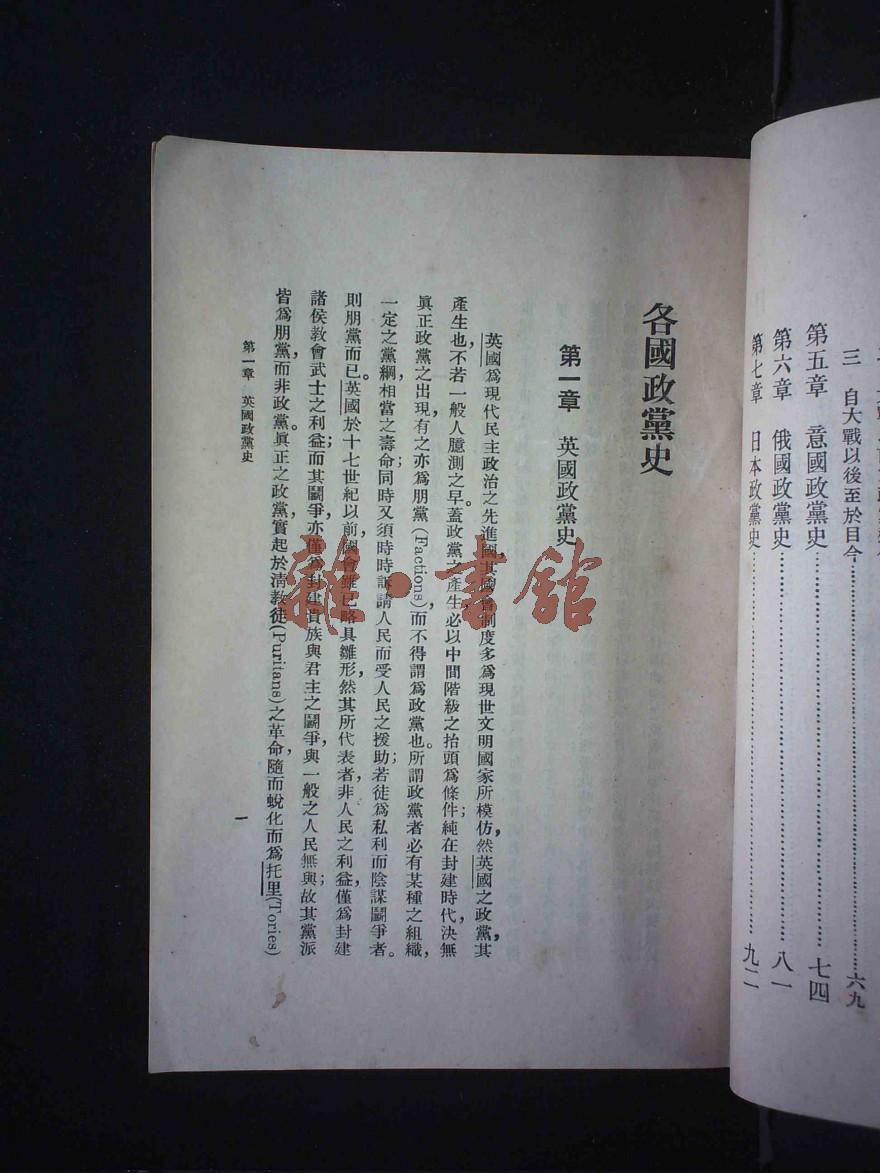 三　自大戰以後至於目今…………六九
第五章　意國政黨史…………七四
第六章　俄國政黨史…………八一
第七章　日本政黨史…………九二
各國政黨史
第一章　英國政黨史
英國爲現代民主政治之先進國，其國會制度多爲現世文明國家所模仿，然英國之政黨，其
產生也，不若一般人臆測之早。蓋政黨之產生必以中間階級之抬頭爲條件；純在封建時代，決無
眞正政黨之出現，有之亦爲朋黨(Factions)，而不得謂爲政黨也。所謂政黨者必有某種之組織，
一定之黨綱，相當之壽命；同時又須時時訴請人民而受人民之援助；若徒爲私利而陰謀鬭爭者。
則朋黨而已。英國於十七世紀以前，國會雖已略具雛形，然其所代表者，非人民之利益，僅爲封建
諸侯教會武士之利益；而其鬭爭，亦僅爲封建貴族與君主之鬭爭，與一般之人民無與；故其黨派
皆爲朋黨，而非政黨。眞正之政黨，實起於淸教徒(Puritans)之革命，隨而蛻化而爲托里(Tories)
第一章　英國政黨史
一
雜·書館